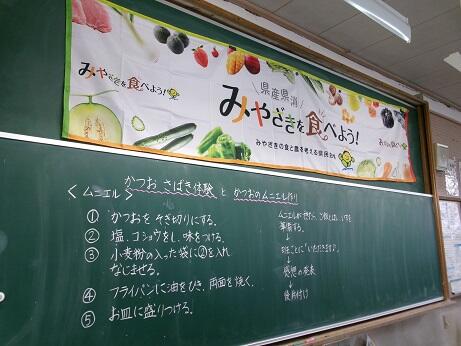 県産県消
みやざきを食べよう!
みやざきを食べよう!
みやざきの食と農を考える県民会議
かつおさばき体験 と かつおのムニエル作り
<ムニエル>
① かつおをそぎ切りにする。
② 塩、コショウをし、味をつける。
③ 小麦粉の入った袋に②を入れ
なじませる。
④ フライパンに油をひき、両面を焼く。
⑤ お皿に盛りつける。
ムニエルができたら、ご飯、しる、いすを
準備する。
↓
班ごとに「いただきます」
↓
感想の発表
↓
後片付け